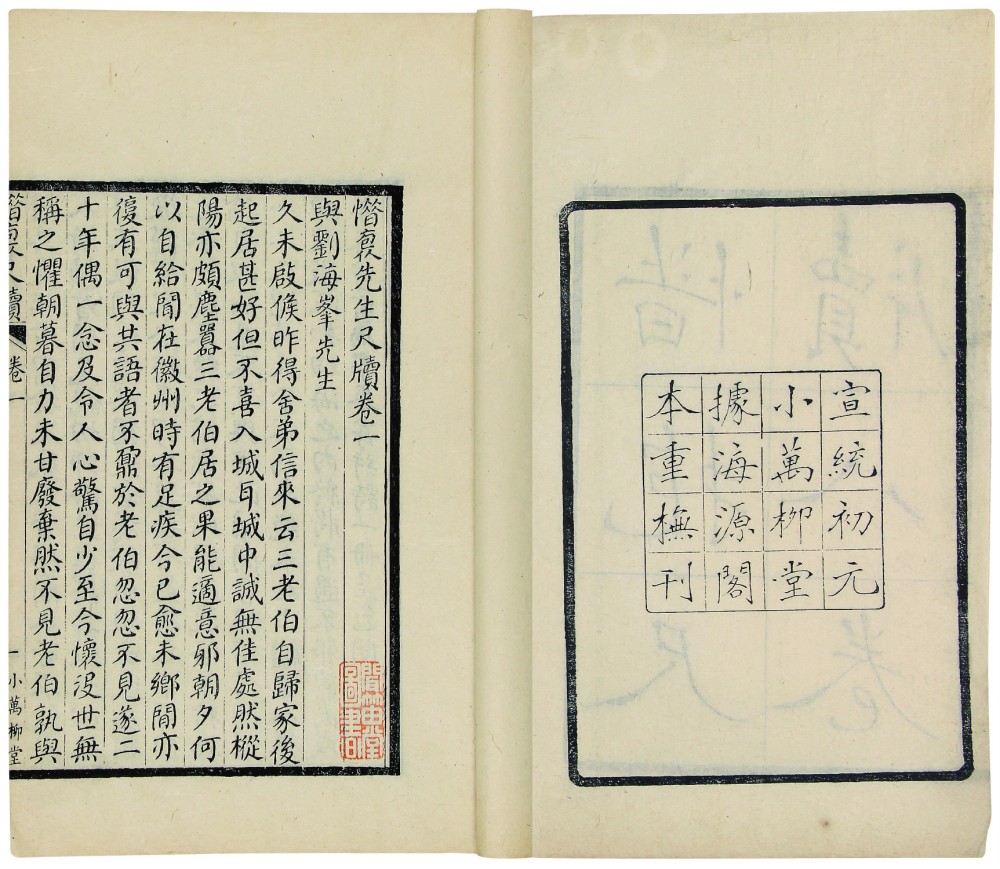 宣統初元
小萬柳堂
據海源閣
本重橅刊
惜裒先生尺牘卷一
與劉海峯先生
久未啟候昨得舍弟信來云三老伯自歸家後
起居甚好但不喜入城耳城中誠無佳處然樅
陽亦頗塵囂三老伯居之果能適意邪朝夕何
以自給聞在徽州時有足疾今已愈未鄉閒亦
復有可與共語者不鼐於老伯忽忽不見遂二
十年偶一念及令人心驚自少至今懷沒世無
稱之懼朝暮自力未甘廢棄然不見老伯孰與
惜裒尺牘 卷一 一 小萬柳堂